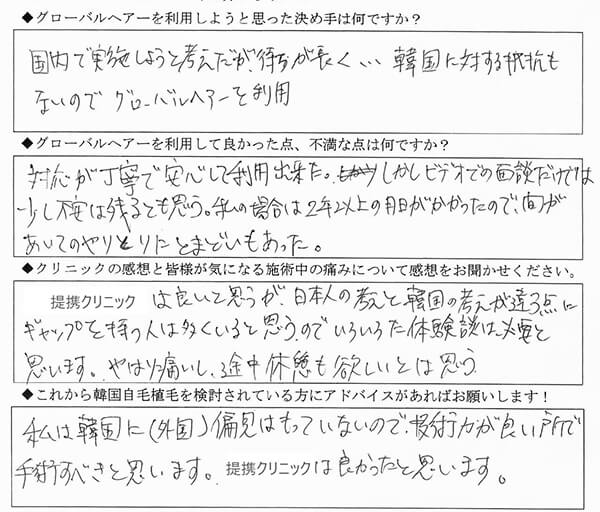 ◆グローバルヘアーを利用しようと思った決め手は何ですか？
国内で実施しようと考えたが、待ちが長く… 韓国に対する抵抗も
ないので グローバルヘアーを利用
◆グローバルヘアーを利用して良かった点、不満な点は何ですか？
対応が丁寧で安心して利用出来た。しかしビデオでの面談だけでは
少し不安は残るとも思う。私の場合は2年以上の月日がかかったので、間が
あいてのやりとりにとまどいもあった。
◆クリニックの感想と皆様が気になる施術中の痛みについて感想をお聞かせください。
提携クリニック は良いと思うが、日本人の考えと韓国の考えが違う点に
ギャップを持つ人は多くいると思うのでいろいろた体験談は必要と
思います。やはり痛いし、途中休憩も欲しいとは思う
◆これから韓国自毛植毛を検討されている方にアドバイスがあればお願いします！
私は韓国に(外国)偏見はもっていないので、技術力が良い所で
手術すべきと思います。提携クリニックは良かったと思います。